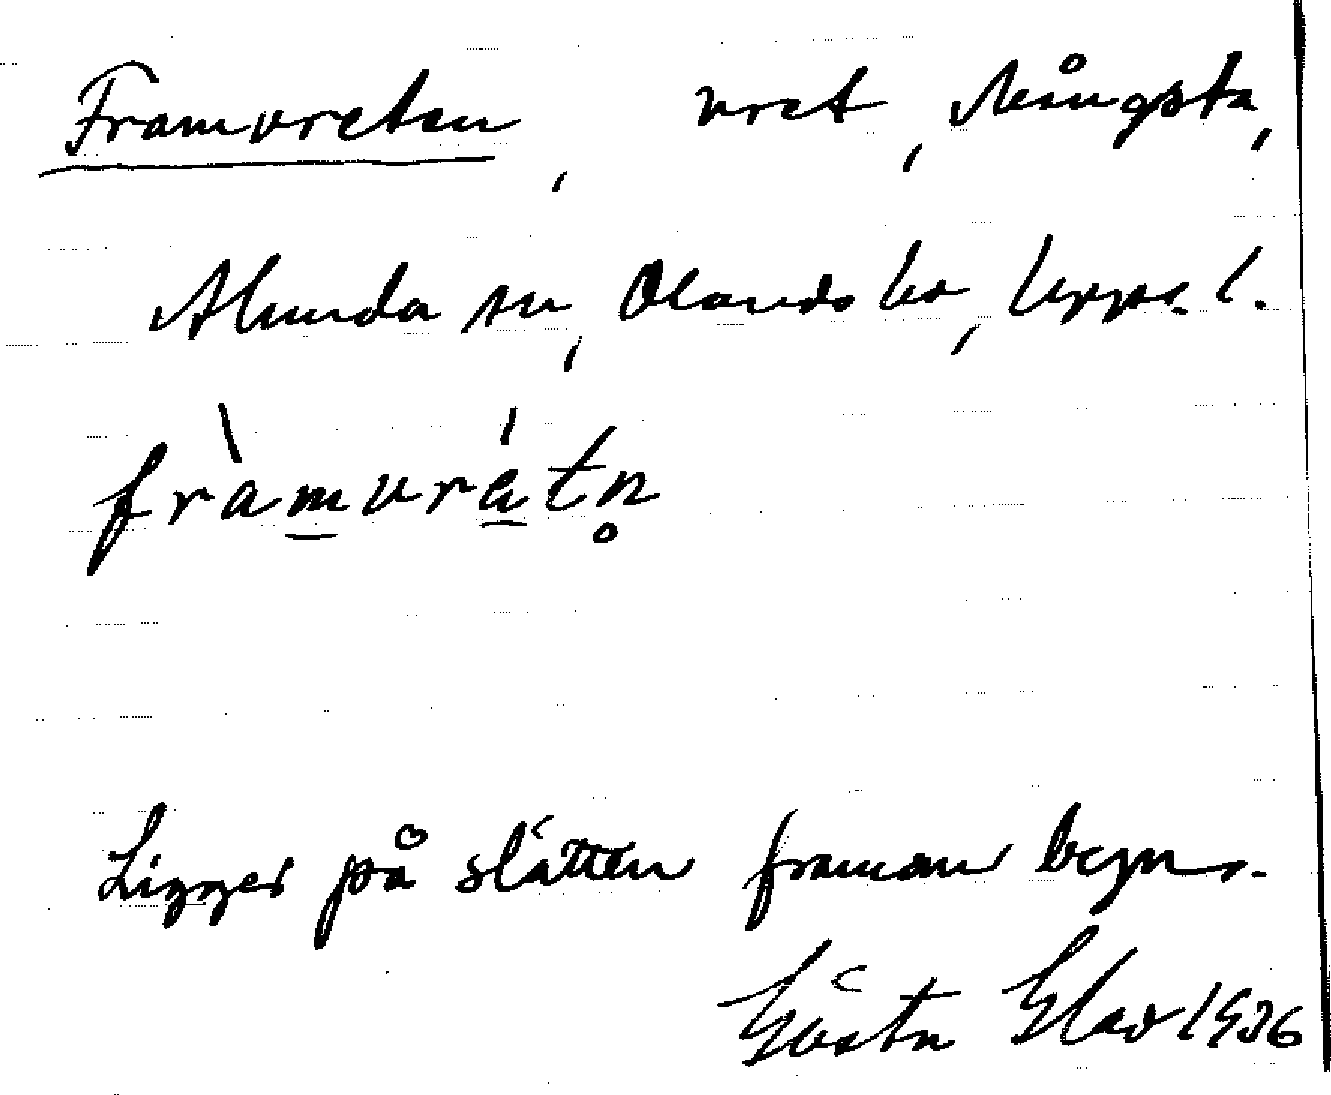 Framvreten, vret, Mångsta,
Alunda sn, Olands hd, Upps. l.
fràmvrátn̥
Ligger på slätten framom byn.
Gösta Elav 1936